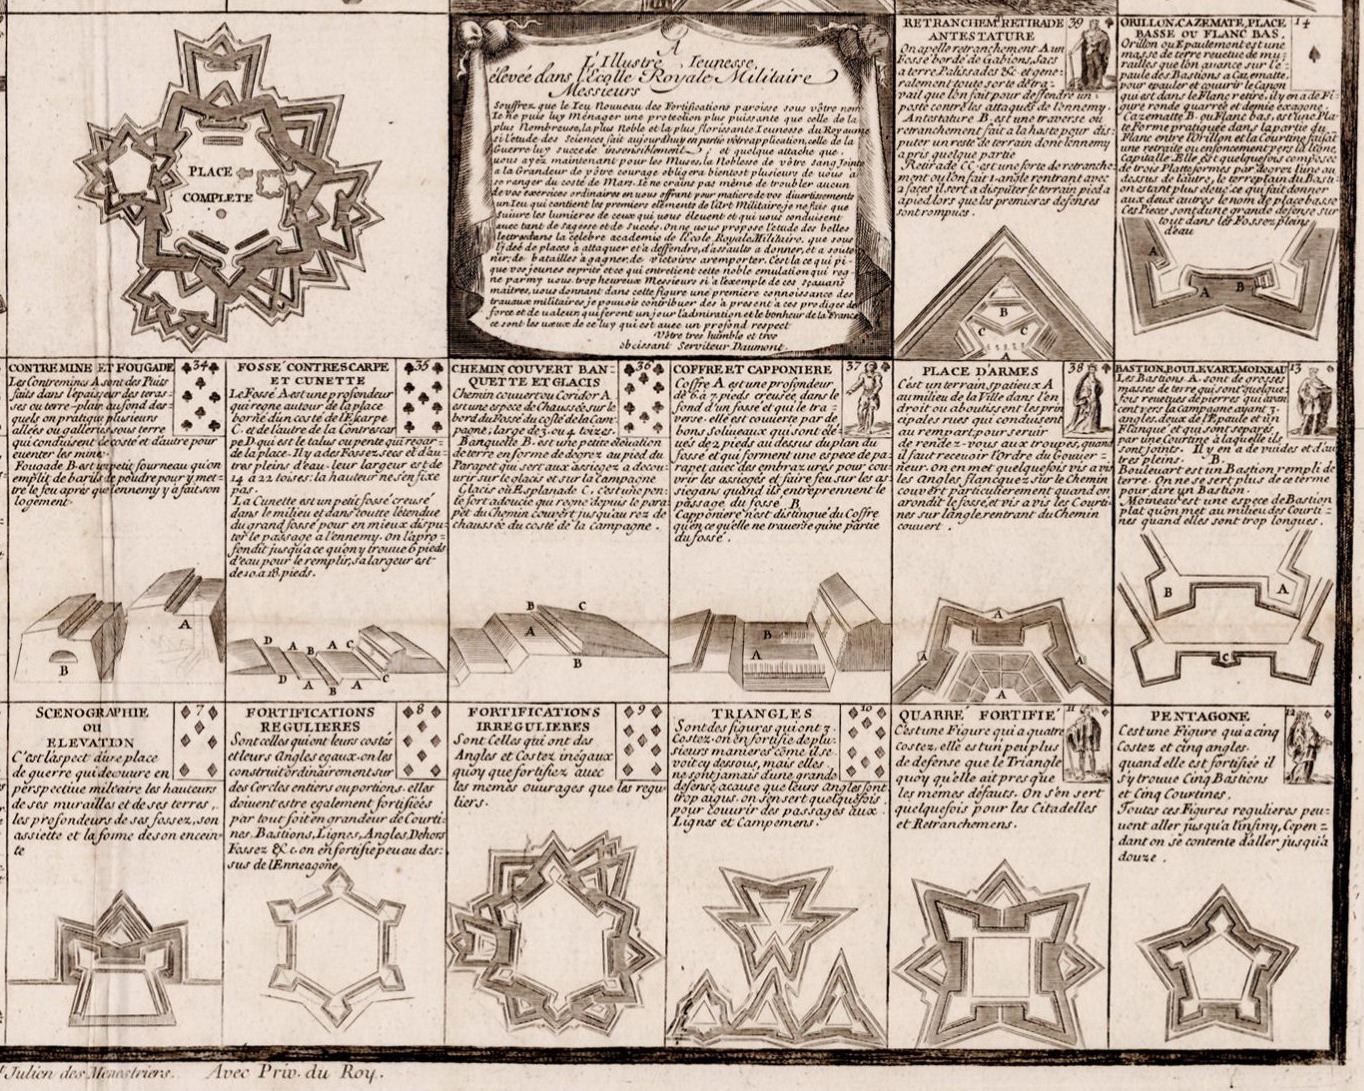 PLACE
COMPLETE
A
L'Illustre Jeunesse,
élevée dans l'Ecolle Royale Militaire
Messieurs
Souffrez que le Jeu Nouveau des Fortifications paroisse sous vôtre nom
Je ne puis luy Ménager une protection plus puissante que celle de la
plus Nombreuse, la plus Noble et la plus florissante Jeunesse du Royaume
si l'etude des Sciences fait aujourdhuy en partie vôtre application, celle de la
Guerre luy succede insensiblement; et quelque attache que
vous ayez maintenant pour les Muses, la Noblesse de vôtre sang Jointe
a la Grandeur de vôtre courage obligera bientost plusieurs de vous a
se ranger du costé de Mars. Je ne crains pas méme de troubler aucun
de vos exercices ordinaires en vous offrant pour matiere de vos divertissements
un Jeu qui contient les premiers elements de l'Art Militaire, je ne fais que
suivre les lumieres de ceux qui vous élevent et qui vous conduisent
avec tant de sagesse et de succés. On ne vous propose l'etude des belles
lettres dans la célebre academie de l'Ecole Royale Militaire, que sous
l'jdeé de places a attaquer et a deffendre, d'assaults a donner, et a soute
nir; de batailles a gagner, de victoires a remporter. C'est la ce qui pi-
que vos jeunes esprits et ce qui entretient cette noble emulation qui reg-
ne parmy vous trop heureux Messieurs si a l'exemple de ces sçavans
maitres, vous donnant dans cette figure une premiere connoissance des
travaux militaires je pouvois contribuer dés a present a ces prodiges de
force et de valeur qui feront un jour l'admiration et le bonheur de la France
ce sont les vœux de celuy qui est avec un profond respect
Vôtre tres humble et tres
obeissant Serviteur Daumont.
RETRANCHEMT RETIRADE 39
ANTESTATURE
On apelle retranchement A un
Fossé bordé de Gabions, Sacs
a terre, Palissades &c. et gene-
ralement toute sorte de tra-
vail que l'on fait pour deffendre un
poste contre les attaques de l'ennemy.
Antestature B. est une traverse ou
retranchement fait a la haste pour dis-
puter un reste de terrain dont l'ennemy
a pris quelque partie
Retirade CC est une sorte de retranche-
ment ou l'on fait 1 angle rentrant avec
2 faces il sert a disputer le terrain pied a
a pied lors que les premieres defenses
sont rompues.
B
C C
A
ORILLON, CAZEMATE, PLACE 14
BASSE OU FLANC BAS.
Orillon ou Epaulement est une
masse de terre revetue de mu-
railles que l'on avance sur l'é-
paule des Bastions a Cazematte.
pour epauler et couvrir le Canon
qui est dans le Flanc retiré, il y en a de Fi-
gure ronde quarreé et demie exagone.
Cazematte B. ou Flanc bas, est une Pla-
te Forme pratiquée dans la partie du
Flanc entre l'Orillon et la Courtine qui fait
une retraite ou enfoncement vers la ligne
Capitalle. Elle est quelquefois composée
de trois Platteformes par degrez l'une au
dessus de l'autre, le terreplain du Basti-
on estant plus elevé, ce qui fait donner
aux deux autres le nom de place basse
Ces Pieces sont d'une grande defense sur
tout dans les Fossez pleins
d'eau
A
A B
CONTREMINE ET FOUGADE 34
Les Contremines A sont des Puits
faits dans l'épaisseur des teras-
ses ou terre-plain au fond des-
quels on pratique plusieurs
allées ou galleries sous terre
qui conduisent de costé et d'autre pour
eventer les mines.
Fougade B. est un petit fourneau qu'on
emplit de barils de poudre pour y met-
tre le feu aprés que l'ennemy y a fait son
logement
A
B
FOSSE' CONTRESCARPE 35
ET CUNETTE
Le Fossé A est une profondeur
qui regne autour de la place
borné d'un costé de l'Escarpe
C. et de l'autre de la Contrescar
pe D. qui est le talus ou pente qui regar-
de la place. Il y a des Fossez secs et d'au-
tres pleins d'eau. leur largeur est de
14 a 22 toises: la hauteur ne s'en fixe
pas.
La Cunette est un petit fossé creusé
dans le milieu et dans toutte létendue
du grand fossé pour en mieux dispu-
ter le passage a l'ennemy. On l'apro-
fondit jusqu'a ce qu'on y trouve 6 pieds
d'eau pour le remplir, sa largeur est
de 10. a 18. pieds.
D A B A C
D A B A C
CHEMIN COUVERT BAN- 36
QUETTE ET GLACIS
Chemin couvert ou Coridor A
est une espece de Chaussée sur le
bord du Fossé du costé de la Cam-
pagne; large de 3 ou 4 toizes.
Banquette B. est une petite élevation
de terre en forme de degrez au pied du
Parapet qui sert aux assiegez a decou-
vrir sur le glacis et sur la campagne
Glacis ou Esplanade C. c'est une pen-
te fort adoucie qui regne depuis le para-
pet du Chemin couvert jusqu'au rez de
chaussée du costé de la Campagne.
B C
A
B
COFFRE ET CAPPONIERE 37
Coffre A est une profondeur
de 6. a 7. pieds creusée dans le
fond d'un fossé et qui le tra-
verse. elle est couverte par de
bons Soliveaux qui sont éle-
vés de 2 pieds au dessus du plan du
fossé et qui forment une espece de pa-
rapet avec des embrazures pour cou-
vrir les assiegés et faire feu sur les as-
siegans quand ils entreprennent le
passage du fossé. B.
Capponiere n'est distingué du Coffre
qu'en ce qu'elle ne traverse qu'une partie
du fossé.
B
A
PLACE D'ARMES 38
C'est un terrain spatieux A
au milieu de la Ville dans l'en
droit ou aboutissent les prin
cipales rues qui conduisent
au rempart, pour servir
de rendez-vous aux troupes, quand
il faut recevoir l'ordre du Gouver-
neur. on en met quelquefois vis a vis
les Angles flancquez sur le Chemin
couvert particulierement quand on
arondit le fossé, et vis a vis les Courti-
nes sur langle rentrant du Chemin
couvert.
A
A A
A
BASTION, BOULEVART, MOINEAU 13
Les Bastions A. sont de grosses
masses de terre qui sont quelque
fois revetues de pierres qui avan
cent vers la Campagne ayant 3.
angles, deux de l'Epaule et un
Flanqué et qui sont separés
par une Courtine a laquelle ils
sont joints. Il y en a de vuides et d'au
tres pleins. B.
Boulevart est un Bastion rempli de
terre. On ne se sert plus de ce terme
pour dire un Bastion.
Moineau est une espece de Bastion
plat qu'on met au milieu des Courti-
nes quand elles sont trop longues.
B A
C
SCENOGRAPHIE 7
OU
ELEVATION
C'est l'aspect d'une place
de guerre qui decouvre en
perspective militaire les hauteurs
de ses murailles et de ses terres,
les profondeurs de ses fossez, son
assiette et la forme de son encein-
te
FORTIFICATIONS 8
REGULIERES
Sont celles qui ont leurs costés
et leurs Angles egaux. on les
construit ordinairement sur
des Cercles entiers ou portions. elles
doivent estre egalement fortifiées
par tout soit en grandeur de Courti-
nes, Bastions, Lignes, Angles, Dehors
Fossez &c. on en fortifie peu au des-
sus de l'Enneagone.
FORTIFICATIONS 9
IRREGULIERES
Sont Celles qui ont des
Angles et Costez inégaux
quoy que fortifiez avec
les memes ouvrages que les regu-
liers.
TRIANGLES 10
Sont des figures qui ont 3.
Costez, on en fortifie de plu-
sieurs manieres comme il se
voit cy dessous, mais elles
ne sont jamais d'une grande
defense, a cause que leurs Angles sont
trop aigus. on s'en sert quelquefois
pour couvrir des passages aux
Lignes et Campemens.
QUARRE' FORTIFIE' 11
C'est une Figure qui a quatre
Costez, elle est un peu plus
de defense que le Triangle
quoy qu'elle ait presque
les mémes défauts. On s'en sert
quelquefois pour les Citadelles
et Retranchemens.
PENTAGONE 12
C'est une Figure qui a cinq
Costez et cinq angles.
quand elle est fortifiée il
s'y trouve Cinq Bastions
et Cinq Courtines.
Toutes ces Figures regulieres peu-
vent aller jusqu'a l'infiny, Cepen-
dant on se contente d'aller jusqu'a
douze.
Julien des Menestriers. Avec Priv. du Roy.